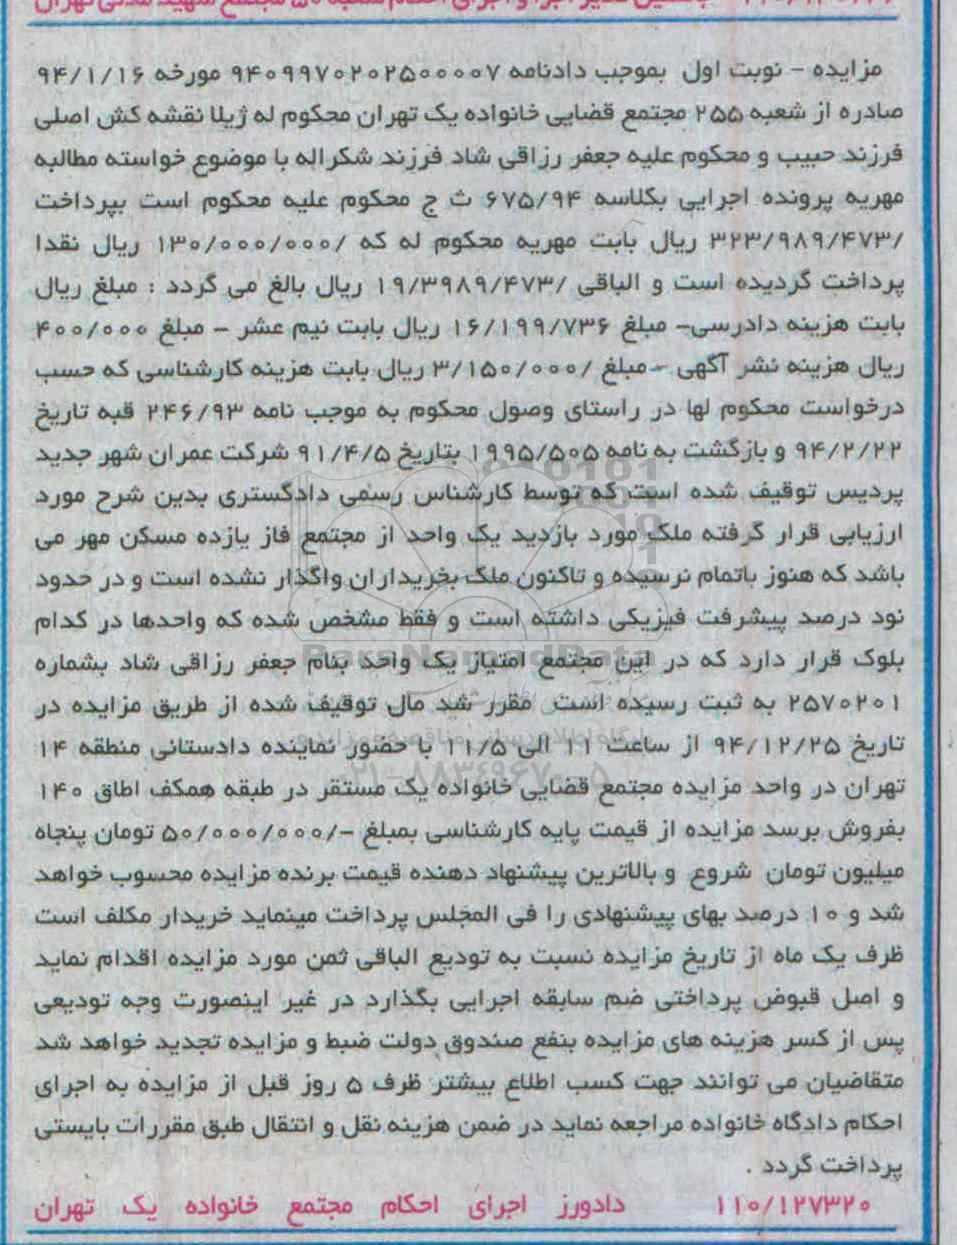 مزایده - نوبت اول بموجب دادنامه ۹۴۰۹۹۷۰۲۰۲۵۰۰۰۰۷ مورخه ۹۴/۱/۱۶
صادره از شعبه ۲۵۵ مجتمع قضایی خانواده یک تهران محکوم له ژیلا نقشه کش اصلی
فرزند حبیب و محکوم علیه جعفر رزاقی شاد فرزند شکراله با موضوع خواسته مطالبه
مهریه پرونده اجرایی بکلاسه ۶۷۵/۹۴ ث ج محکوم علیه محکوم است بپرداخت
/۳۲۳/۹۸۹/۴۷۳ ریال بابت مهریه محکوم له که /۱۳۰/۰۰۰/۰۰۰ ریال نقدا
پرداخت گردیده است و الباقی /۱۹/۳۹۸۹/۴۷۳ ریال بالغ می گردد : مبلغ ریال
بابت هزینه دادرسی- مبلغ ۱۶/۱۹۹/۷۳۶ ریال بابت نیم عشر - مبلغ ۴۰۰/۰۰۰
ریال هزینه نشر آگهی - مبلغ /۳/۱۵۰/۰۰۰ ریال بابت هزینه کارشناسی که حسب
درخواست محکوم لها در راستای وصول محکوم به موجب نامه ۲۴۶/۹۳ قبه تاریخ
۹۴/۲/۲۲ و بازگشت به نامه ۱۹۹۵/۵۰۵ بتاریخ ۹۱/۴/۵ شرکت عمران شهر جدید
پردیس توقیف شده است که توسط کارشناس رسمی دادگستری بدین شرح مورد
ارزیابی قرار گرفته ملک مورد بازدید یک واحد از مجتمع فاز یازده مسکن مهر می
باشد که هنوز باتمام نرسیده و تاکنون ملک بخریداران واگذار نشده است و در حدود
نود درصد پیشرفت فیزیکی داشته است و فقط مشخص شده که واحدها در کدام
بلوک قرار دارد که در این مجتمع امتیاز یک واحد بنام جعفر رزاقی شاد بشماره
۲۵۷۰۲۰۱ به ثبت رسیده است مقرر شد مال توقیف شده از طریق مزایده در
تاریخ ۹۴/۱۲/۲۵ از ساعت ۱۱ الی ۱۱/۵ با حضور نماینده دادستانی منطقه ۱۴
تهران در واحد مزایده مجتمع قضایی خانواده یک مستقر در طبقه همکف اطاق ۱۴۰
بفروش برسد مزایده از قیمت پایه کارشناسی بمبلغ -/۵۰/۰۰۰/۰۰۰ تومان پنجاه
میلیون تومان شروع و بالاترین پیشنهاد دهنده قیمت برنده مزایده محسوب خواهد
شد و ۱۰ درصد بهای پیشنهادی را فی المجلس پرداخت مینماید خریدار مکلف است
ظرف یک ماه از تاریخ مزایده نسبت به تودیع الباقی ثمن مورد مزایده اقدام نماید
و اصل قبوض پرداختی ضم سابقه اجرایی بگذارد در غیر اینصورت وجه تودیعی
پس از کسر هزینه های مزایده بنفع صندوق دولت ضبط و مزایده تجدید خواهد شد
متقاضیان می توانند جهت کسب اطلاع بیشتر ظرف ۵ روز قبل از مزایده به اجرای
احکام دادگاه خانواده مراجعه نماید در ضمن هزینه نقل و انتقال طبق مقررات بایستی
پرداخت گردد .
۱۱۰/۱۲۷۳۲۰ دادورز اجرای احکام مجتمع خانواده یک تهران
ParsNamadData
۰۲۱-۸۸۳۴۹۶۷۰-۵